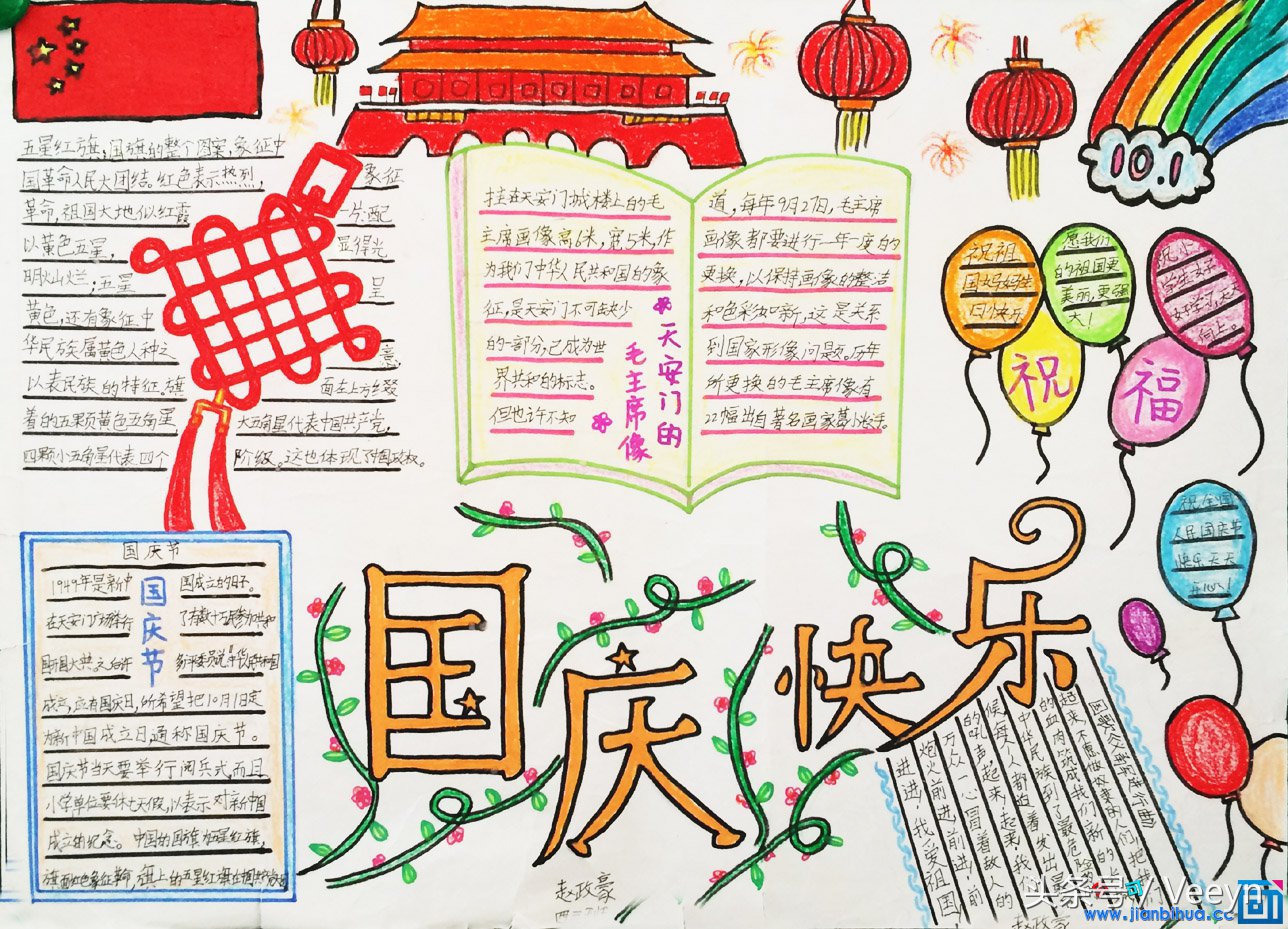 五星红旗，国旗的整个图案，象征中
国革命人民大团结。红色表示热烈，象征
革命，祖国大地似红霞一片；配
以黄色五星，显得光
明灿烂；五星呈
黄色，还有象征中
华民族属黄色人种之意，
以表民族的特征。旗面左上方缀
着的五颗黄色五角星大五角星代表中国共产党，
四颗小五角星代表四个阶级。这也体现了中国政权。
挂在天安门城楼上的毛
主席画像高6米，宽5米，作
为我们中华人民共和国的象
征，是天安门不可缺少
的一部分，已成为世
界共和的标志。
但也许不知
天安门的
毛主席像
道，每年9月27日，毛主席
画像都要进行一年一度的
更换，以保持画像的整洁
和色彩如新，这是关系
到国家形像问题。历年
所更换的毛主席像有
22幅出自著名画家葛小
10.1
祝祖
国妈妈生
日快乐
愿我们
的祖国更
美丽，更强
大！
学生好
好学习天天
向上。
祝
福
祝全国
人民国庆节
快乐天天
开心！
国庆节
国庆节
1949年是新中国成立的日子。
在天安门广场举行了有数十万
国开国大典
成立，应有国庆日，所希望把10月1日定
为新中国成立日，通称国庆节。
国庆节当天要举行阅兵式，而且
小学单位要休七天假，以表示对新中国
成立的纪念。中国的国旗为五星红旗，
旗面红色象征革命，旗上的五星红旗
国庆快乐
义勇军进行曲
起来不愿做奴隶的人们把我们
的血肉筑成我们新的
中华民族到了最危险的
候每个人都迫着发出最
的吼声起来起来我
万众一心冒着敌人的
炮火前进前进前
进进，我爱祖国
赵政豪
赵政豪
头条号 / Veeyn
www.jianbihua.cc